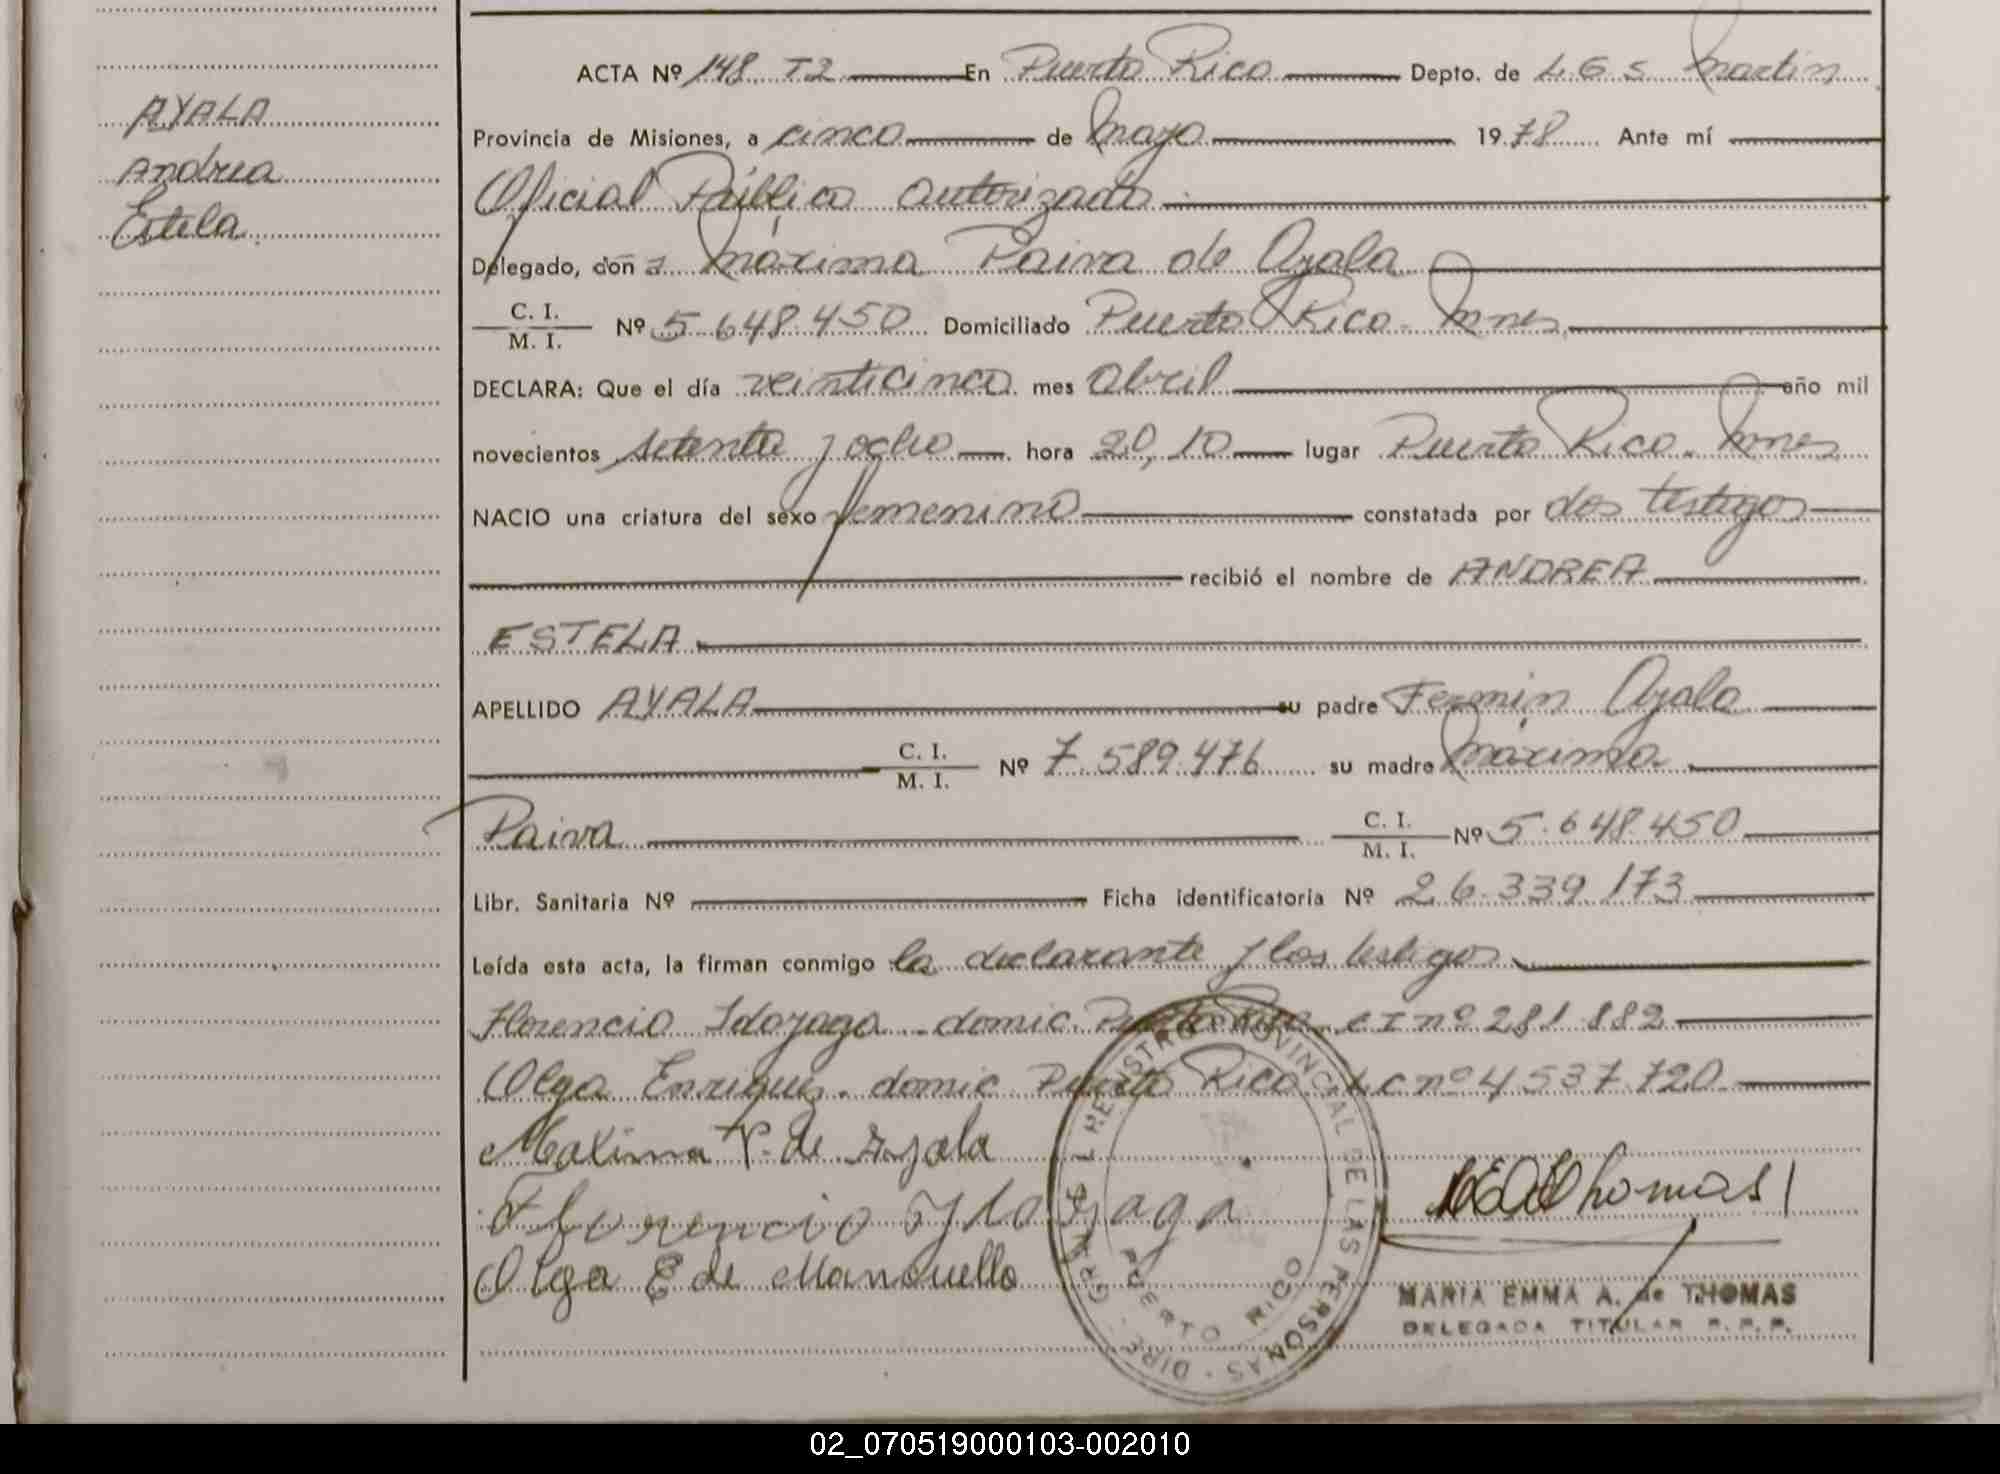 AYALA
Andrea
Estela.
ACTA Nº 148 T2 En Puerto Rico Depto. de L G S Martin
Provincia de Misiones, a cinco de Mayo 1978 Ante mí
Oficial Público autorizado
Delegado, don a Máxima Paiva de Ayala
C. I.
M. I. Nº 5.648.450 Domiciliado Puerto Rico - Mnes
DECLARA: Que el día veinticinco mes Abril año mil
novecientos setenta y ocho hora 20,10 lugar Puerto Rico - Mnes
NACIO una criatura del sexo femenino constatada por dos testigos
recibió el nombre de ANDREA
ESTELA
APELLIDO AYALA su padre Fermín Ayala
C. I.
M. I. Nº 7.589.476 su madre Máxima
Paiva C. I.
M. I. Nº 5.648.450
Libr. Sanitaria Nº Ficha identificatoria Nº 26.339.173
Leída esta acta, la firman conmigo la declarante y los testigos
Florencio Idozaga - domic. Puerto Rico c I nº 281.882
Olga Enriquez - domic Puerto Rico L c nº 4537.720
Maxima P. de Ayala
Florencio Ydozaga
Olga E de Manouello
DIRE. GRAL. DEL REGISTRO PROVINCIAL DE LAS PERSONAS
PUERTO RICO
MEA de Thomas
MARIA EMMA A. de THOMAS
DELEGADA TITULAR R.P.P.
02_070519000103-002010